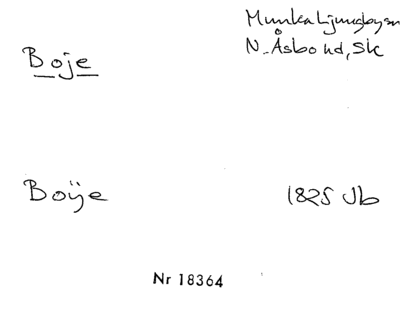 Boje
Munka Ljungbysn
N. Åsbo hd, Sk
Boÿe
1825 Jb
Nr 18364